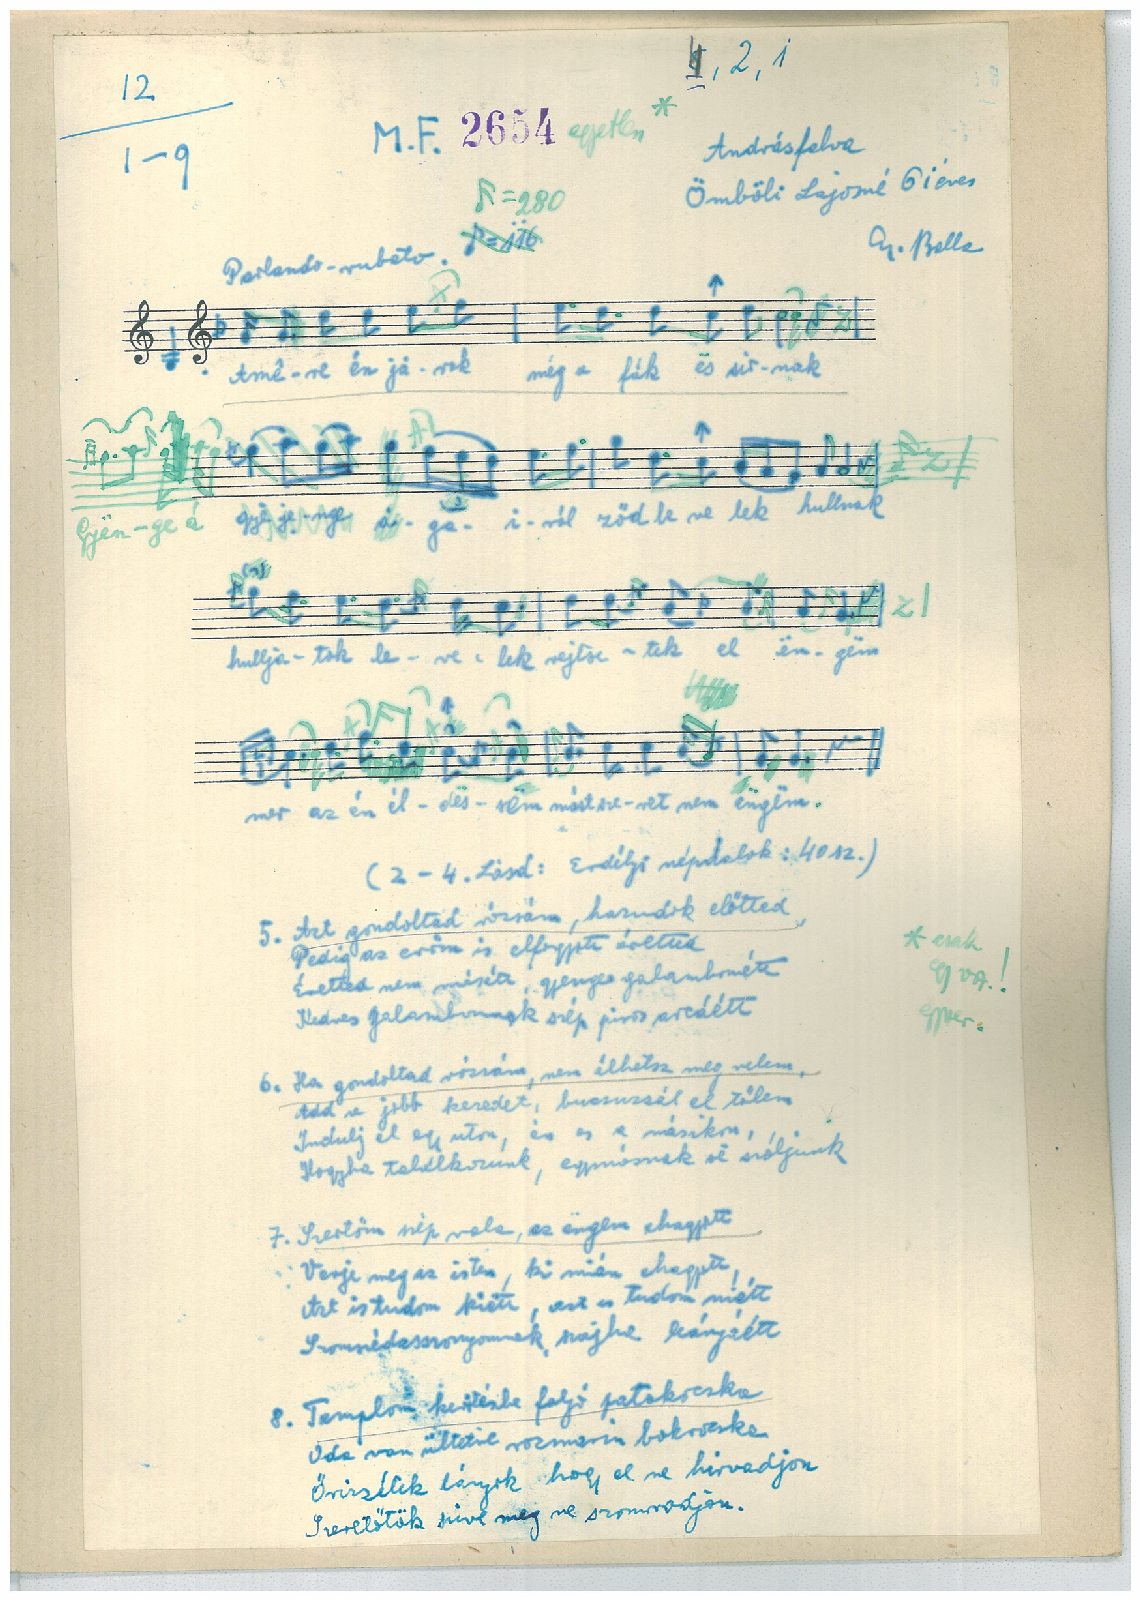 4, 2, i
12
1-9
M.F. 2654 egyetlen *
Andrásfalva
Ömböli Lajosné 61 éves
Gy. Bella
=280
=116
Parlando-rubato.
Amê-re én já-rok még a fák ës sir-nak
Gyën-ge á
gyënge á-ga-i-ról zöd le ve lek hullnak
hullja-tok le-ve-lek rejtse-tek el ën-gëm
mer az én él-dës-sëm mást sze-ret nem ëngëm.
(2-4. Lásd: Erdélyi népdalok: 40 sz.)
5. Azt gondoltad rózsám, hazudok előtted,
Pedig az erőm is elfogyott éretted
Éretted nem másétt, gyenge galambométt
Kedves galambomnak szép piros orcáétt
* csak
egy va.!
gyver.
6. Ha gondoltad rózsám, nem élhetsz meg velem,
Add a jobb kezedet, bucsuzzál el tőlem
Indulj el egy uton, én es a másikon,
Hogyha találkozunk, egymásnak së szóljunk
7. Szeretőm szép vala, az ëngem ehagyott
Verje meg az isten, ki mián ehagyott,
Azt is tudom kiétt, azt es tudom miétt
Szomszédasszonyomnak szajha leányáétt
8. Templom kertésbe folyó patakocska
Oda van ültetve rozmarin bokrocska
Őrizzétëk lányok hogy el ne hirvadjon
Szeretőtök szive meg ne szomorodjon.